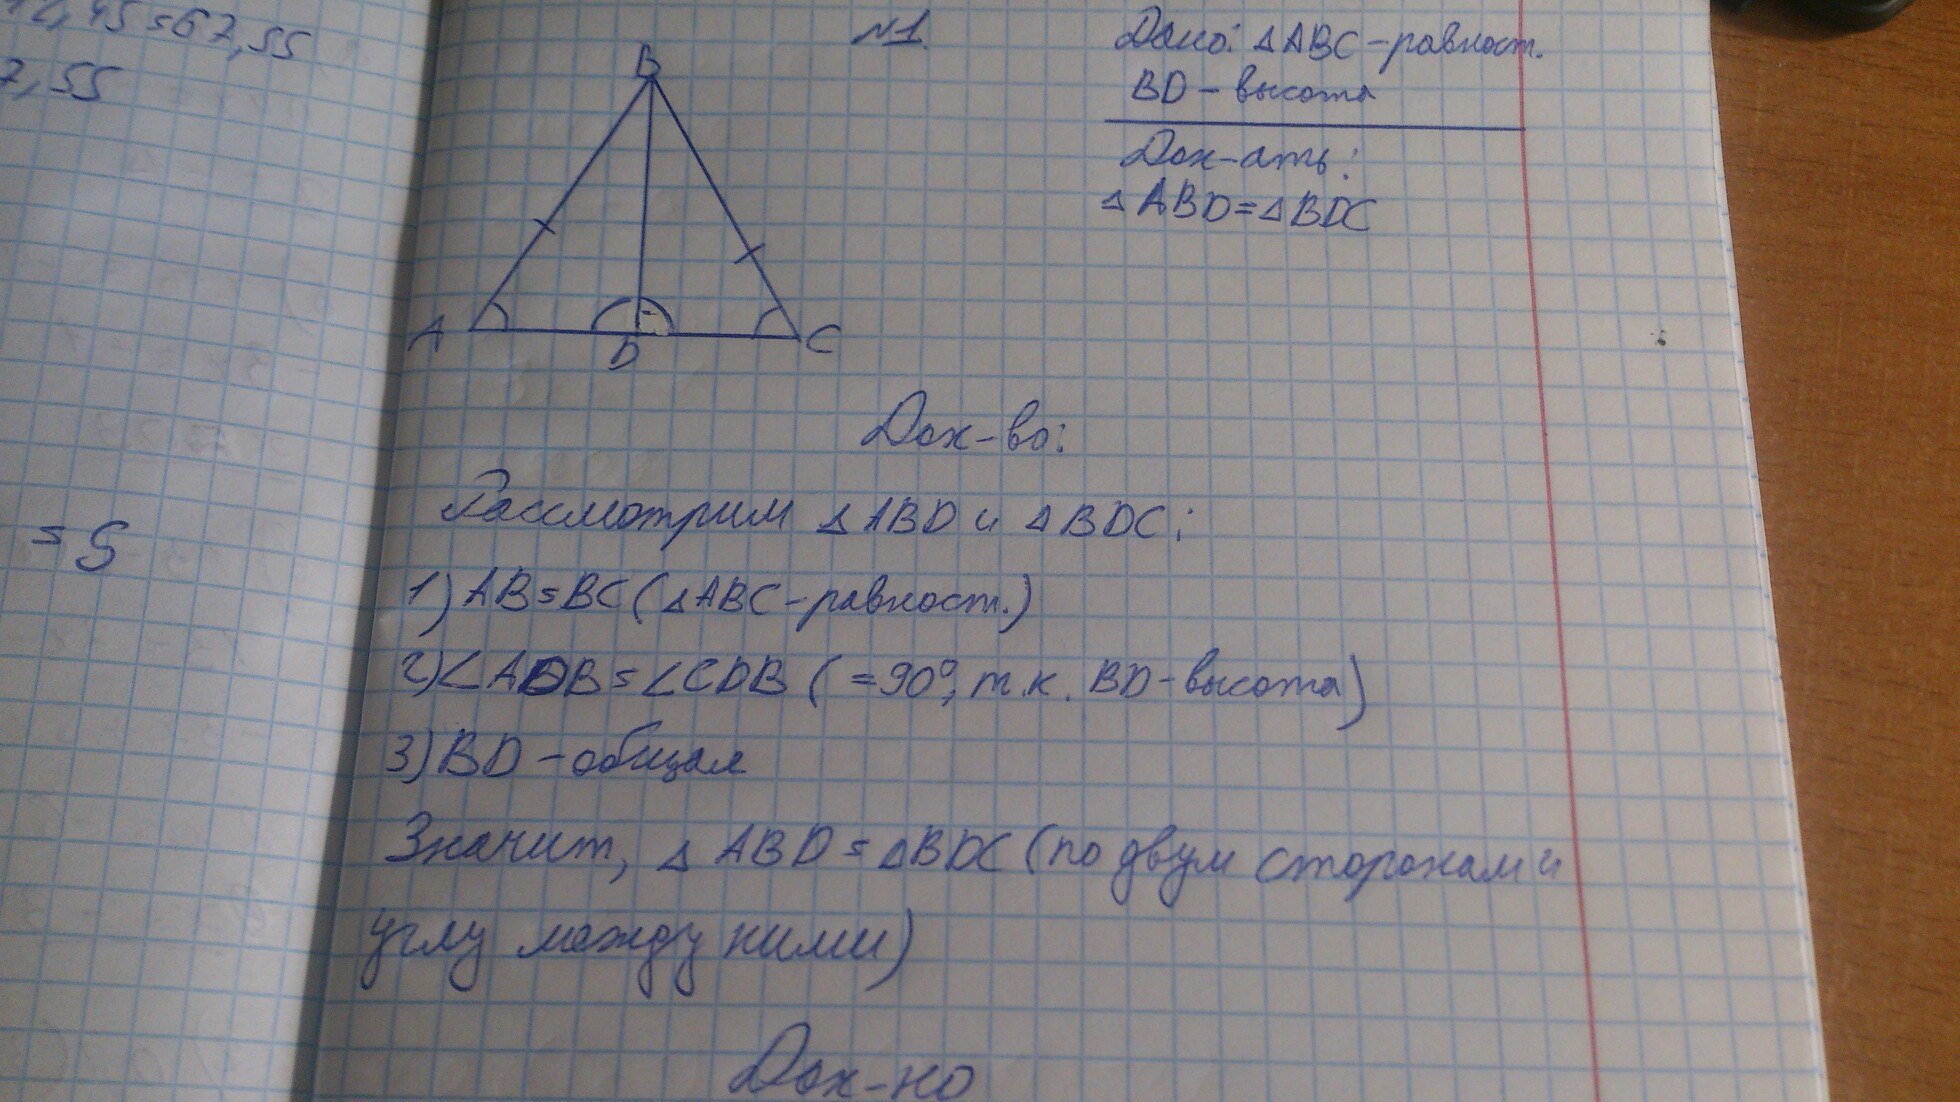 12,45=67,55
7,55
=S
№1.
Дано: △ABC-равност.
BD - высота
Док-ать:
△ABD=△BDC
B
A
D
C
Док-во:
Рассмотрим △ABD и △BDC:
1) AB=BC (△ABC-равност.)
2) ∠ADB=∠CDB (=90°, т.к. BD-высота)
3) BD - общая
Значит, △ABD=△BDC (по двум сторонам и
углу между ними)
Док-но